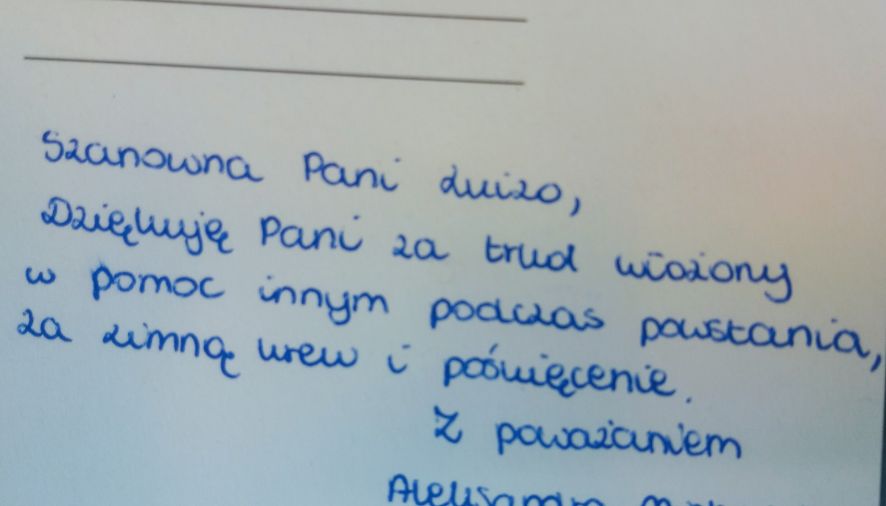 Szanowna Pani Luizo,
Dziękuję Pani za trud włożony
w pomoc innym podczas powstania,
za zimną krew i poświęcenie.
Z poważaniem